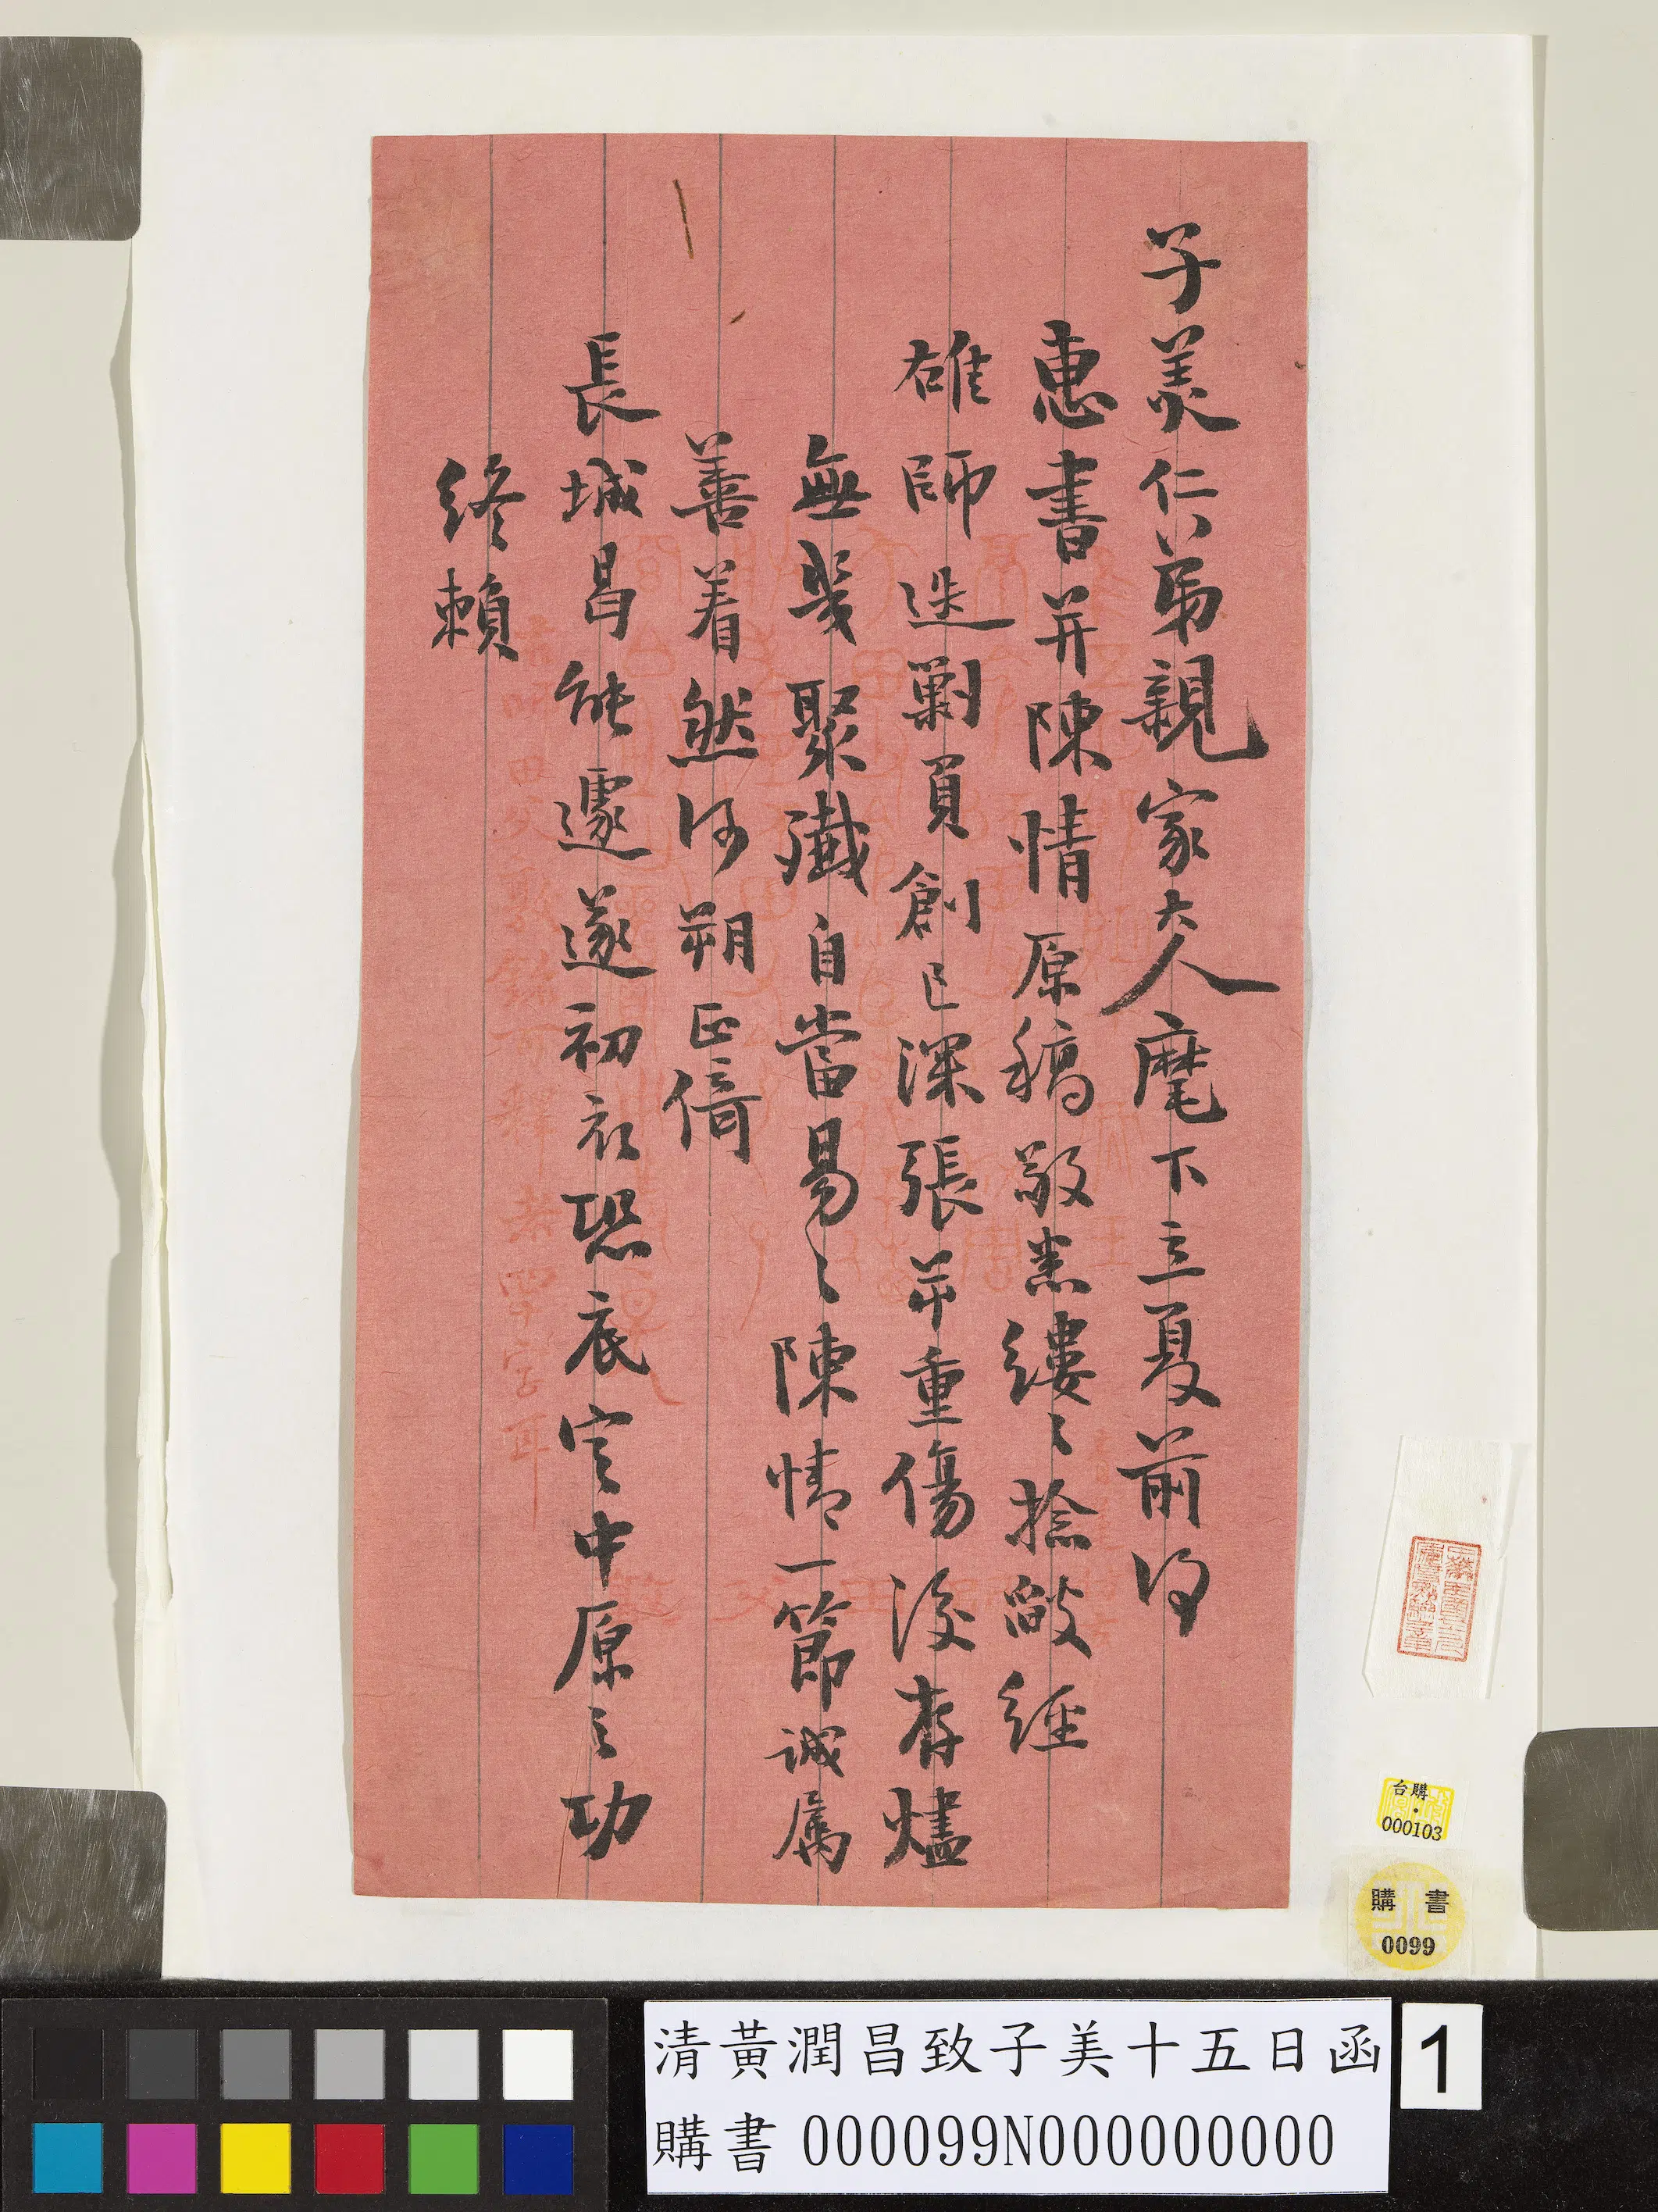 子美仁弟親家大人麾下立夏前得
惠書并陳情原稿敬悉縷々捻敵經
雄師迭剿負創已深張
重傷後存燼
無幾聚殲自當易々陳情一節誠屬
善着然河朔正倚
長城昌能遽遂初衣恐底定中原之功
終賴
台購
000103
購書
0099
清黃潤昌致子美十五日函
購書 000099N000000000
1